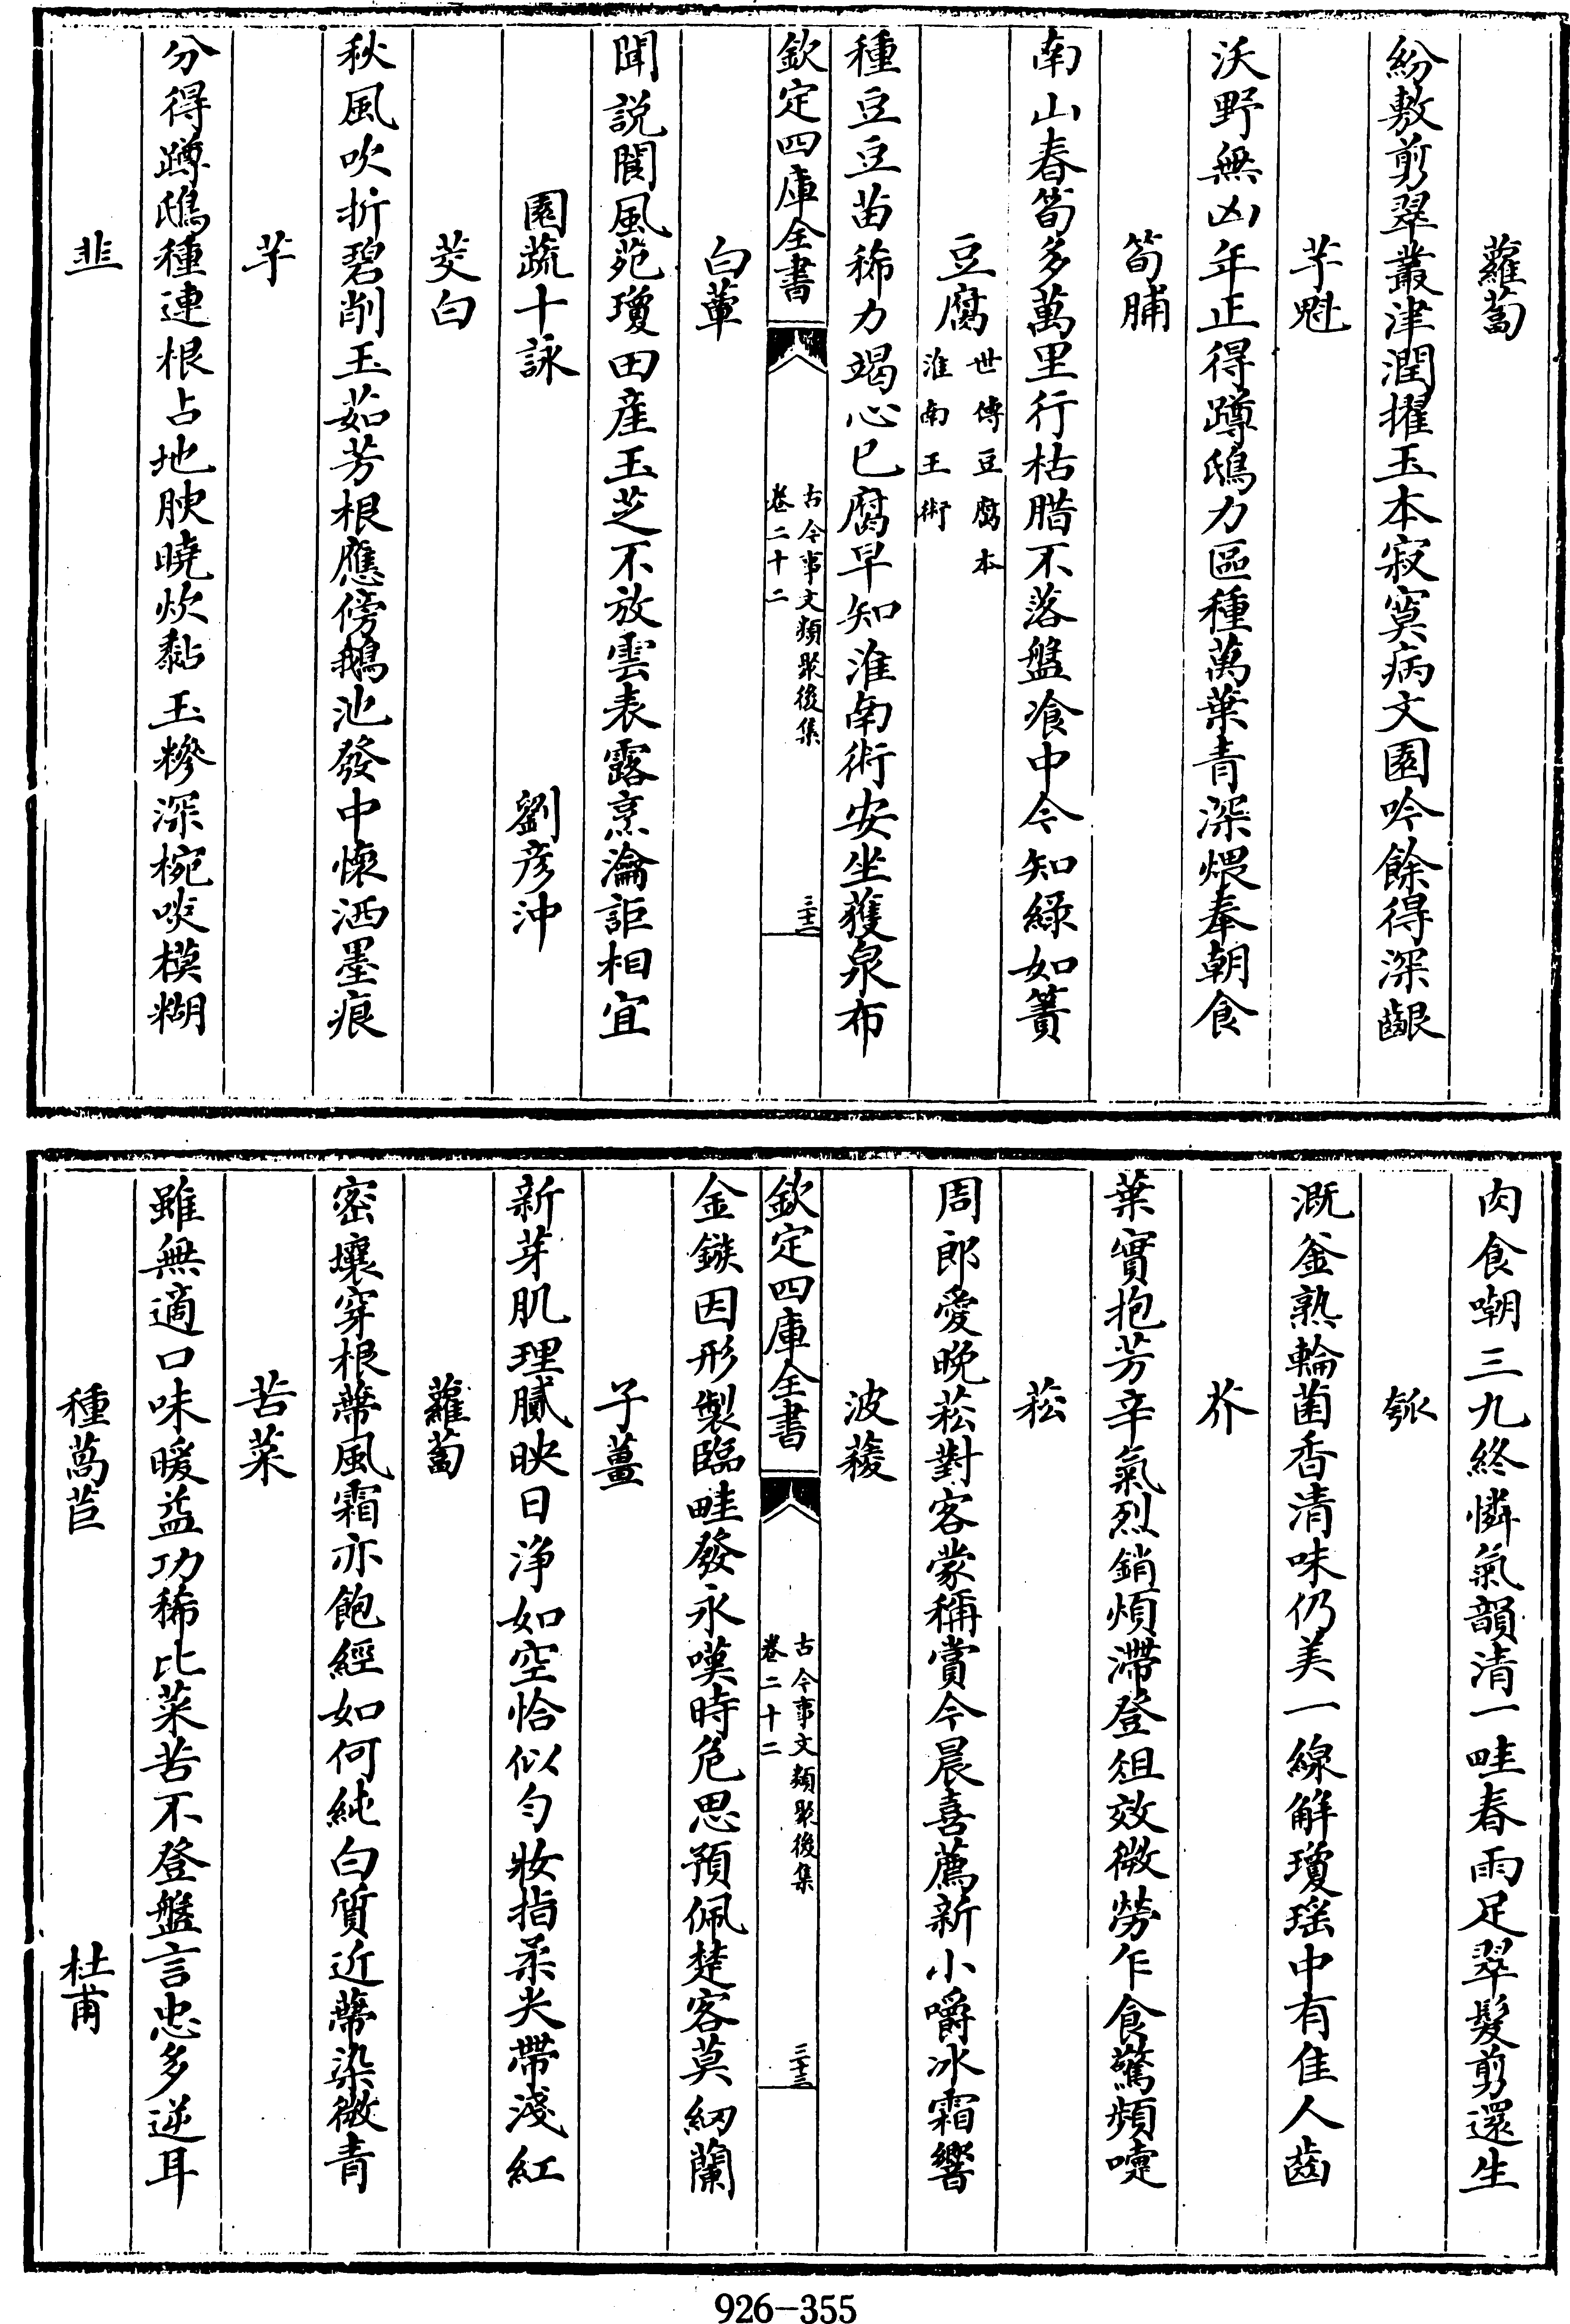 蘿蔔
紛敷剪翠叢津潤擢玉本寂寞病文園吟餘得深齦
芋魁
沃野無凶年正得蹲鴟力區種萬葉青深煨奉朝食
筍脯
南山春筍多萬里行枯腊不落盤飡中今知緑如簀
豆腐 世傳豆腐本
淮南王術
種豆豆苗稀力竭心已腐早知淮南術安坐獲泉布
欽定四庫全書
古今事文類聚後集
卷二十二
三十二
白蕈
聞説閬風苑瓊田産玉芝不放雲表露烹瀹詎相宜
園蔬十詠 劉彥沖
茭白
秋風吹折碧削玉茹芳根應傍鵝池發中懷洒墨痕
芋
分得蹲鴟種連根占地腴曉炊黏玉糝深椀啖模糊
韭
肉食嘲三九終憐氣韻清一畦春雨足翠髮剪還生
瓠
溉釜熟輪菌香清味仍美一線解瓊瑶中有佳人齒
芥
葉實抱芳辛氣烈銷煩滯登俎效微勞乍食驚頻嚏
菘
周郎愛晩菘對客蒙稱賞今晨喜薦新小嚼冰霜響
波薐
欽定四庫全書
古今事文類聚後集
卷二十二
三十三
金鏃因形製臨畦發永嘆時危思預佩楚客莫紉蘭
子薑
新芽肌理膩映日浄如空恰似勻妝指柔尖帶淺紅
蘿蔔
密壤穿根蔕風霜亦飽經如何純白質近蔕染微青
苦菜
雖無適口味暖益功稀比菜苦不登盤言忠多逆耳
種萵苣 杜甫
926-355